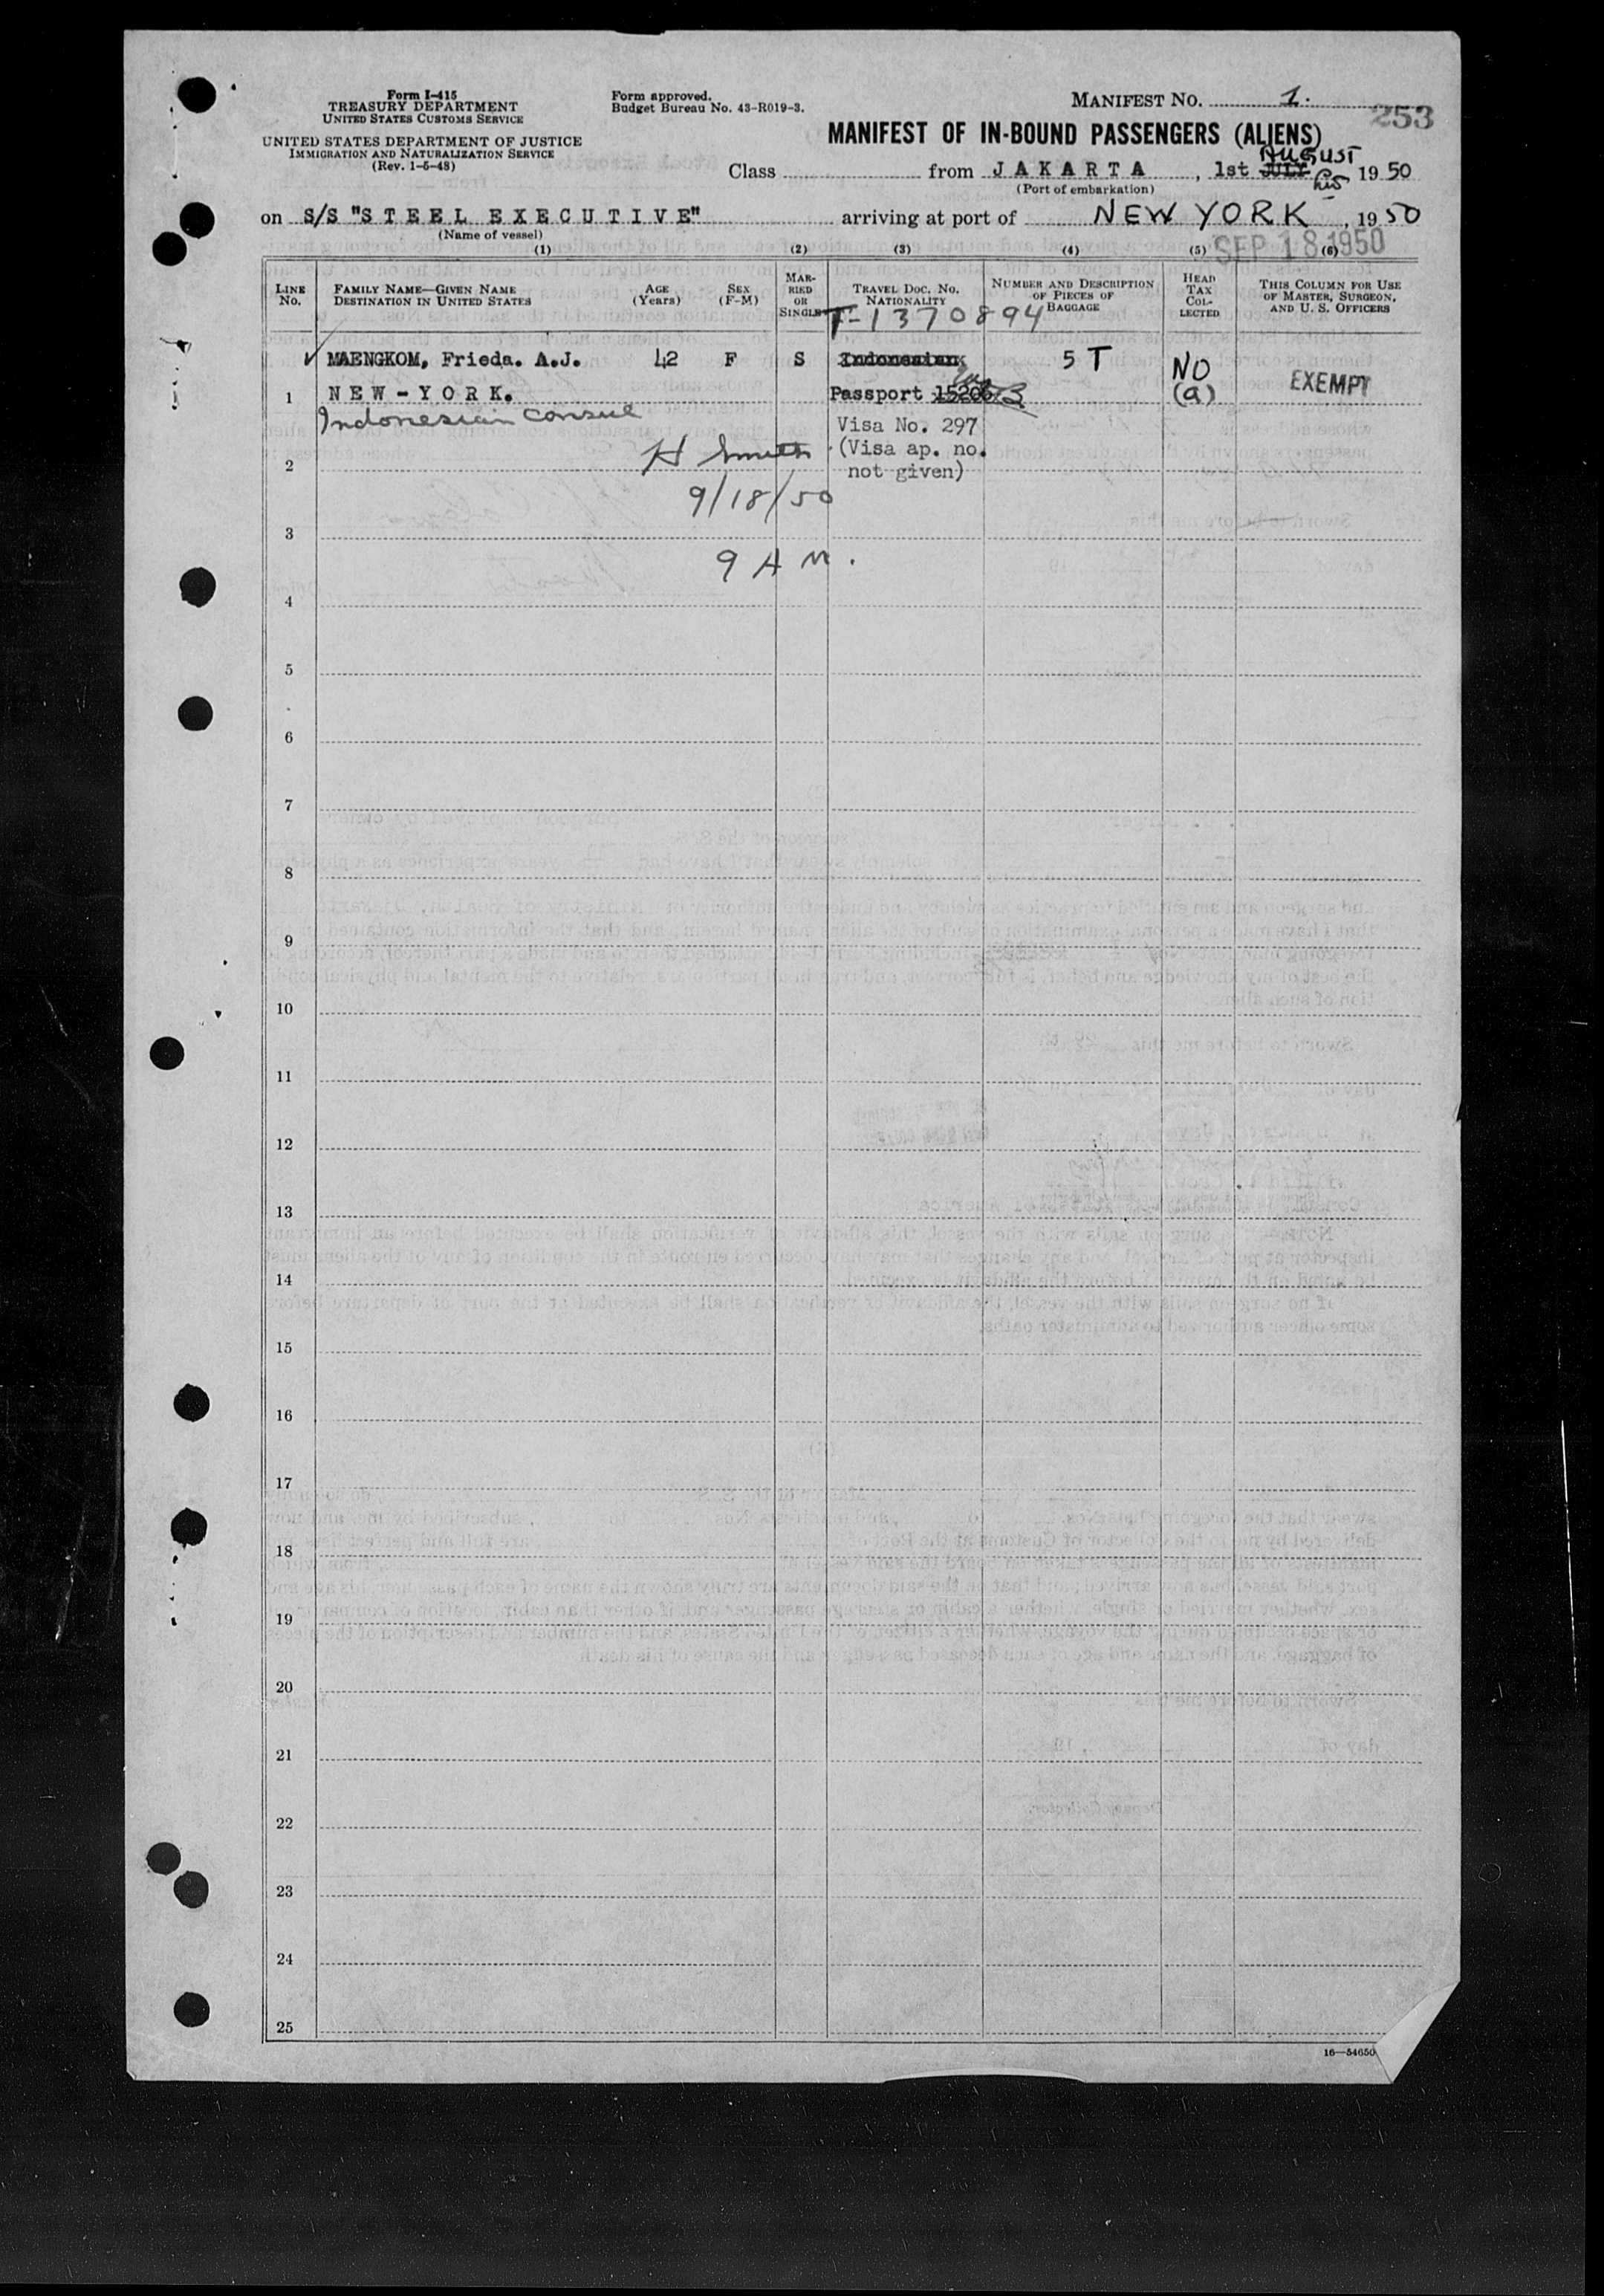 Form I-415
TREASURY DEPARTMENT
UNITED STATES CUSTOMS SERVICE
UNITED STATES DEPARTMENT OF JUSTICE
IMMIGRATION AND NATURALIZATION SERVICE
(Rev. 1-5-48)
Form approved.
Budget Bureau No. 43-R019-3.
MANIFEST NO. 1.
253
MANIFEST OF IN-BOUND PASSENGERS (ALIENS)
AUGUST
Class from JAKARTA, 1st JULY 1950
(Port of embarkation)
on S/S "STEEL EXECUTIVE" arriving at port of NEW YORK, 1950
(Name of vessel)
SEP 18 1950
(1) (2) (3) (4) (5) (6)
LINE NO.
FAMILY NAME—GIVEN NAME
DESTINATION IN UNITED STATES
AGE (Years)
SEX (F-M)
MARRIED OR SINGLE
TRAVEL DOC. NO. NATIONALITY
NUMBER AND DESCRIPTION OF PIECES OF BAGGAGE
HEAD TAX COLLECTED
THIS COLUMN FOR USE OF MASTER, SURGEON, AND U. S. OFFICERS
T-1370894
MAENGKOM, Frieda. A.J. 42 F S Indonesian 5 T NO
1 NEW-YORK. Passport (a) EXEMPT
Indonesian Consul Visa No. 297
H Smith (Visa ap. no.
2 not given)
9/18/50
3
9 A M.
4
5
6
7
8
9
10
11
12
13
14
15
16
17
18
19
20
21
22
23
24
25
16—54650